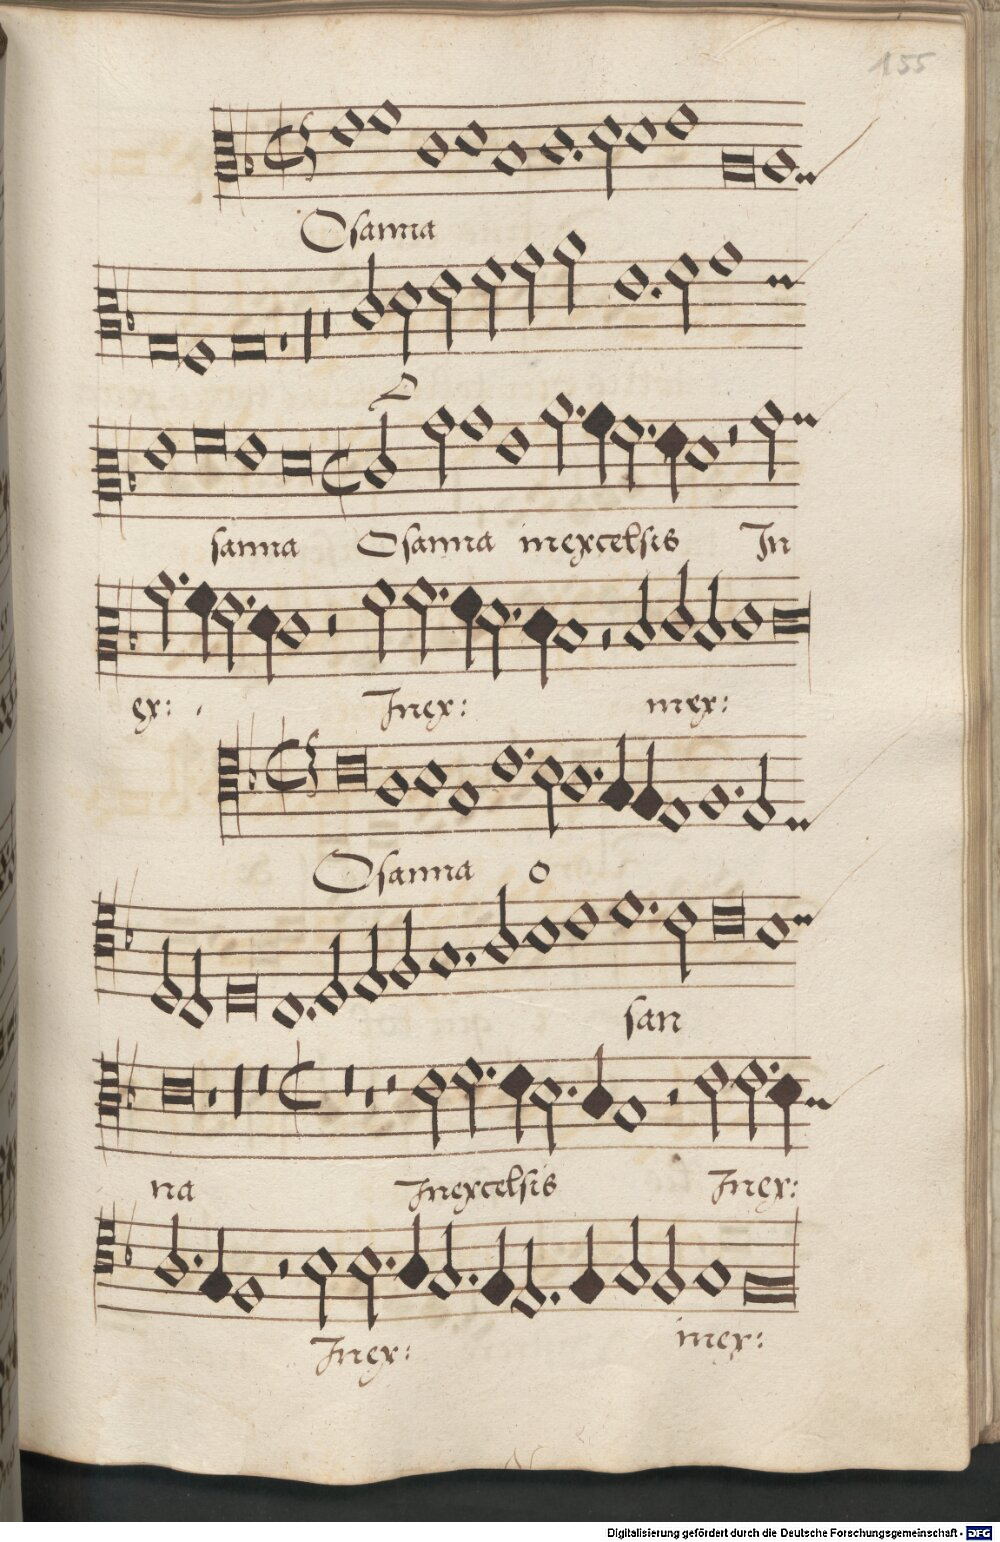 155
Osanna
O
sanna Osanna inexcelsis In
ex: Inex: inex:
Osanna o
san
na Inexcelsis Inex:
Inex: inex:
Digitalisierung gefördert durch die Deutsche Forschungsgemeinschaft - DFG